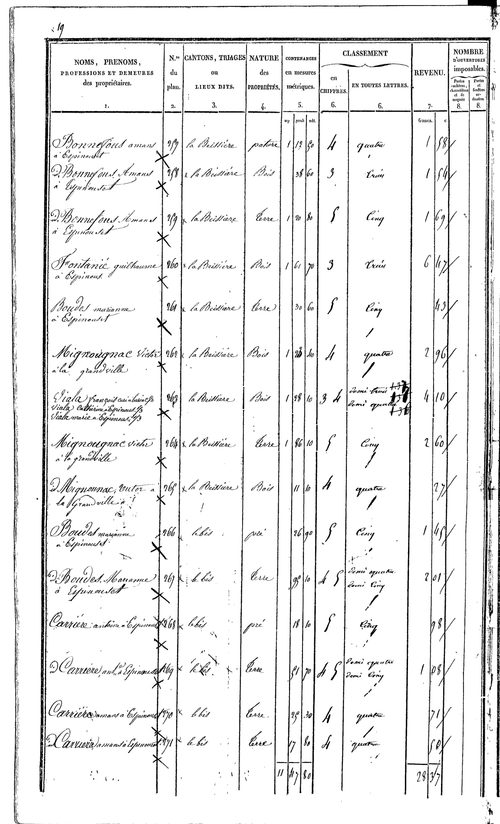 19
NOMS, PRENOMS, PROFESSIONS ET DEMEURES des propriétaires. N.os du plan. CANTONS, TRIAGES ou LIEUX DITS. NATURE des PROPRIÉTÉS. CONTENANCES en mesures métriques. CLASSEMENT en CHIFFRES. EN TOUTES LETTRES. REVENU. NOMBRE D'OUVERTURES imposables.
1. 2. 3. 4. 5. 6. 6. 7. 8. 8.
Bonnefous amans 257 la Boissiere pature 1 13 50 4 quatre 1 58
à Espinouset
d. Bonnefous Amans 258 la Boissiere Bois 38 60 3 trois 1 54
à Espinouset
d. Bonnefous Amans 259 la Boissiere terre 1 20 80 5 Cinq 1 69
à Espinouset
Fontanié guilhaume 260 la Boissiere Bois 1 61 70 3 trois 6 47
à Espinous
Boudes marianne 261 la Boissiere terre 30 60 5 Cinq 43
à Espinouset
Mignougnac Victor 262 la Boissiere Bois 1 4 quatre 2 96
à la grandville
Viala françois 263 la Boissiere Bois 1 28 10 3 4 demi trois 4 10
viala catherine à Espinouset 1/3 demi quatre
viala marie à Espinouset 1/3
Mignougnac victor 264 la Boissiere terre 1 86 10 5 Cinq 2 60
à la grandville
d. Mignounac, victor à 265 la Boissiere Bois 11 10 4 quatre 27
la Grandville
Boudes marianne 266 le bès pré 26 90 5 Cinq 1 45
à Espinouset
d. Boudes Marianne 267 le bès terre 95 10 4 5 demi quatre 2 01
à Espinouset demi Cinq
Carrière antoine à Espinouset 268 le bès pré 18 10 5 Cinq 98
d. Carrière, ant.e à Espinouset 269 le bès terre 51 70 4 5 demi quatre 1 08
demi Cinq
Carrière amans à Espinouset 270 le bès terre 25 30 4 quatre 71
d. Carrière, amans à Espinouset 271 le bès terre 17 80 4 quatre 50
11 47 80 28 37